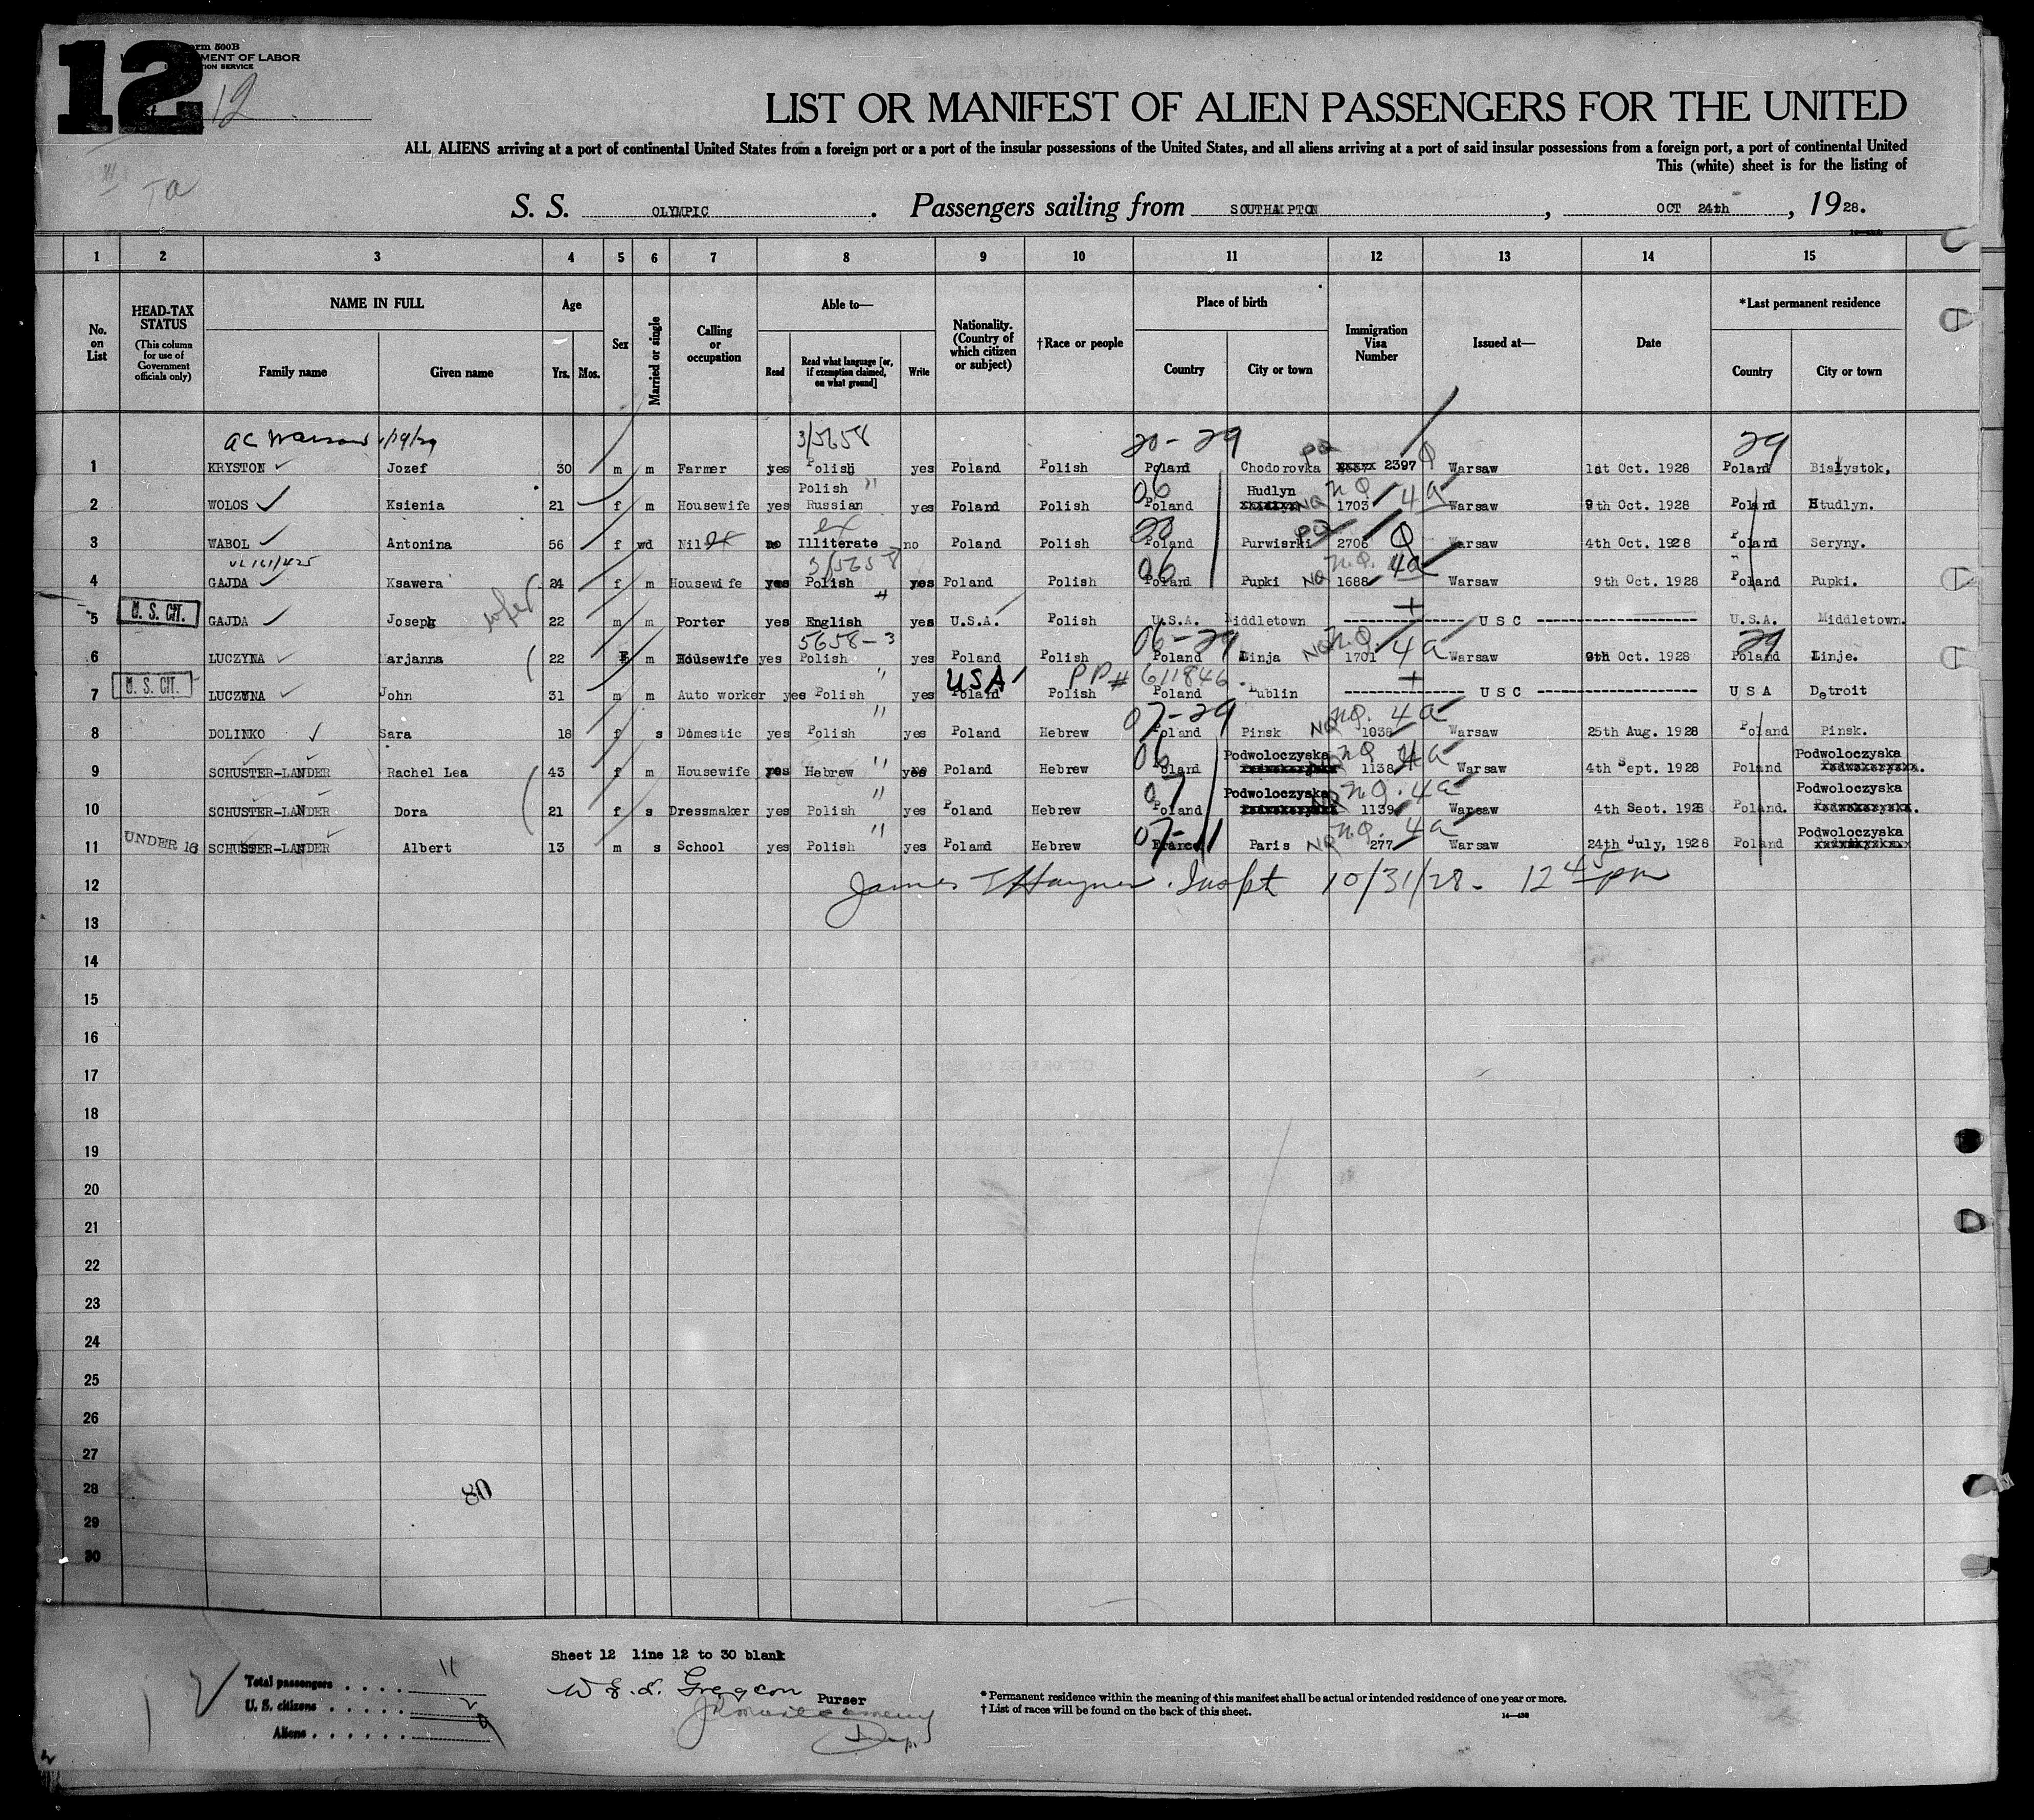 12
Form 500B
MENT OF LABOR
TION SERVICE
12
LIST OR MANIFEST OF ALIEN PASSENGERS FOR THE UNITED
ALL ALIENS arriving at a port of continental United States from a foreign port or a port of the insular possessions of the United States, and all aliens arriving at a port of said insular possessions from a foreign port, a port of continental United
This (white) sheet is for the listing of
S. S. OLYMPIC. Passengers sailing from SOUTHAMPTON, OCT 24th, 1928.
1 2 3 4 5 6 7 8 9 10 11 12 13 14 15
No. on List
HEAD-TAX STATUS (This column for use of Government officials only)
NAME IN FULL
Family name Given name
Age
Yrs. Mos.
Sex
Married or single
Calling or occupation
Able to—
Read
Read what language [or, if exemption claimed, on what ground]
Write
Nationality. (Country of which citizen or subject)
†Race or people
Place of birth
Country City or town
Immigration Visa Number
Issued at—
Date
*Last permanent residence
Country City or town
ac Warsaw 1/19/29 3/5658 20-29 PQ 29
1 KRYSTON Jozef 30 m m Farmer yes Polish yes Poland Polish Poland Chodorovka 2397 Q Warsaw 1st Oct. 1928 Poland Bialystok.
Polish " 06 Hudlyn NQ 4a
2 WOLOS Ksienia 21 f m Housewife yes Russian yes Poland Polish Poland NQ 1703 Warsaw 9th Oct. 1928 Poland Hudlyn.
ex PQ
3 WABOL Antonina 56 f wd Nil ex no Illiterate no Poland Polish Poland Purwiski 2706 Q Warsaw 4th Oct. 1928 Poland Seryny.
3/5658 06 N.Q. 4a
4 GAJDA Ksawera 24 f m Housewife yes Polish yes Poland Polish Poland Pupki NQ 1688 Warsaw 9th Oct. 1928 Poland Pupki.
U. S. CIT. "
5 GAJDA Joseph 22 m m Porter yes English yes U.S.A. Polish U.S.A. Middletown ---------------- U S C ---------------- U.S.A. Middletown.
5658-3 06-29 NQ 4a 29
6 LUCZYNA Marjanna 22 f m Housewife yes Polish yes Poland Polish Poland Linja NQ 1701 Warsaw 9th Oct. 1928 Poland Linje.
U. S. CIT. " USA PP# 611846
7 LUCZYNA John 31 m m Auto worker yes Polish yes Poland Polish Poland Lublin ---------------- U S C ---------------- U S A Detroit
" 07-29 NQ. 4a
8 DOLINKO Sara 18 f s Domestic yes Polish yes Poland Hebrew Poland Pinsk NQ 1038 Warsaw 25th Aug. 1928 Poland Pinsk.
" 06 Podwoloczyska NQ 4a Podwoloczyska
9 SCHUSTER-LANDER Rachel Lea 43 f m Housewife yes Hebrew yes Poland Hebrew Poland 1138 Warsaw 4th Sept. 1928 Poland
" 07 Podwoloczyska N.Q. 4a Podwoloczyska
10 SCHUSTER-LANDER Dora 21 f s Dressmaker yes Polish yes Poland Hebrew Poland 1139 Warsaw 4th Seot. 1928 Poland.
UNDER 16 " 07-11 N.Q. 4a Podwoloczyska
11 SCHUSTER-LANDER Albert 13 m s School yes Polish yes Poland Hebrew France Paris NQ 277 Warsaw 24th July, 1928 Poland
12 James T Hayner. Inspt 10/31/28. 12 45 pm
13
14
15
16
17
18
19
20
21
22
23
24
25
26
27
28 80
29
30
Sheet 12 line 12 to 30 blank
Total passengers . . . . 11
U. S. citizens . . . . . 2
Aliens . . . . . . 9
Purser
* Permanent residence within the meaning of this manifest shall be actual or intended residence of one year or more.
† List of races will be found on the back of this sheet.